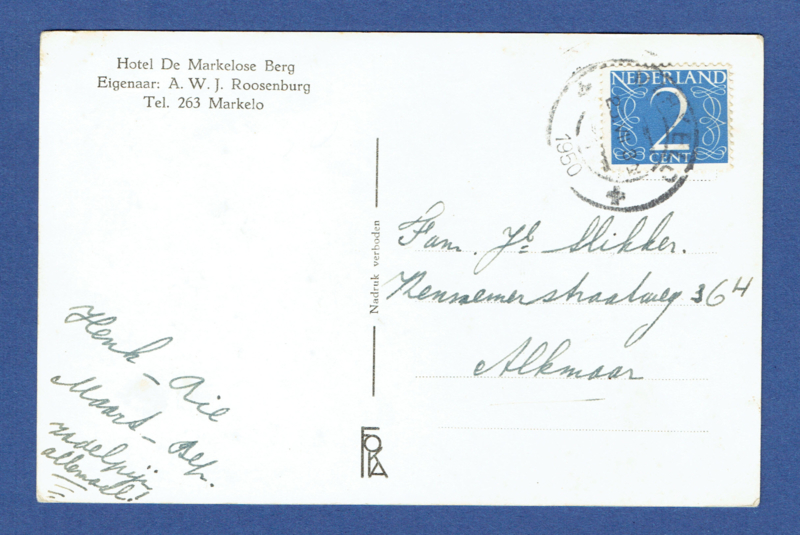 Hotel De Markelose Berg
Eigenaar: A. W. J. Roosenburg
Tel. 263 Markelo
NEDERLAND
2
CENT
1950
Nadruk verboden
Fam. Jb Slikker.
Kennemerstraatweg 364
Alkmaar
Henk - Rie
Maart - Bep.
zadelpijn
allemaal!
FOKA